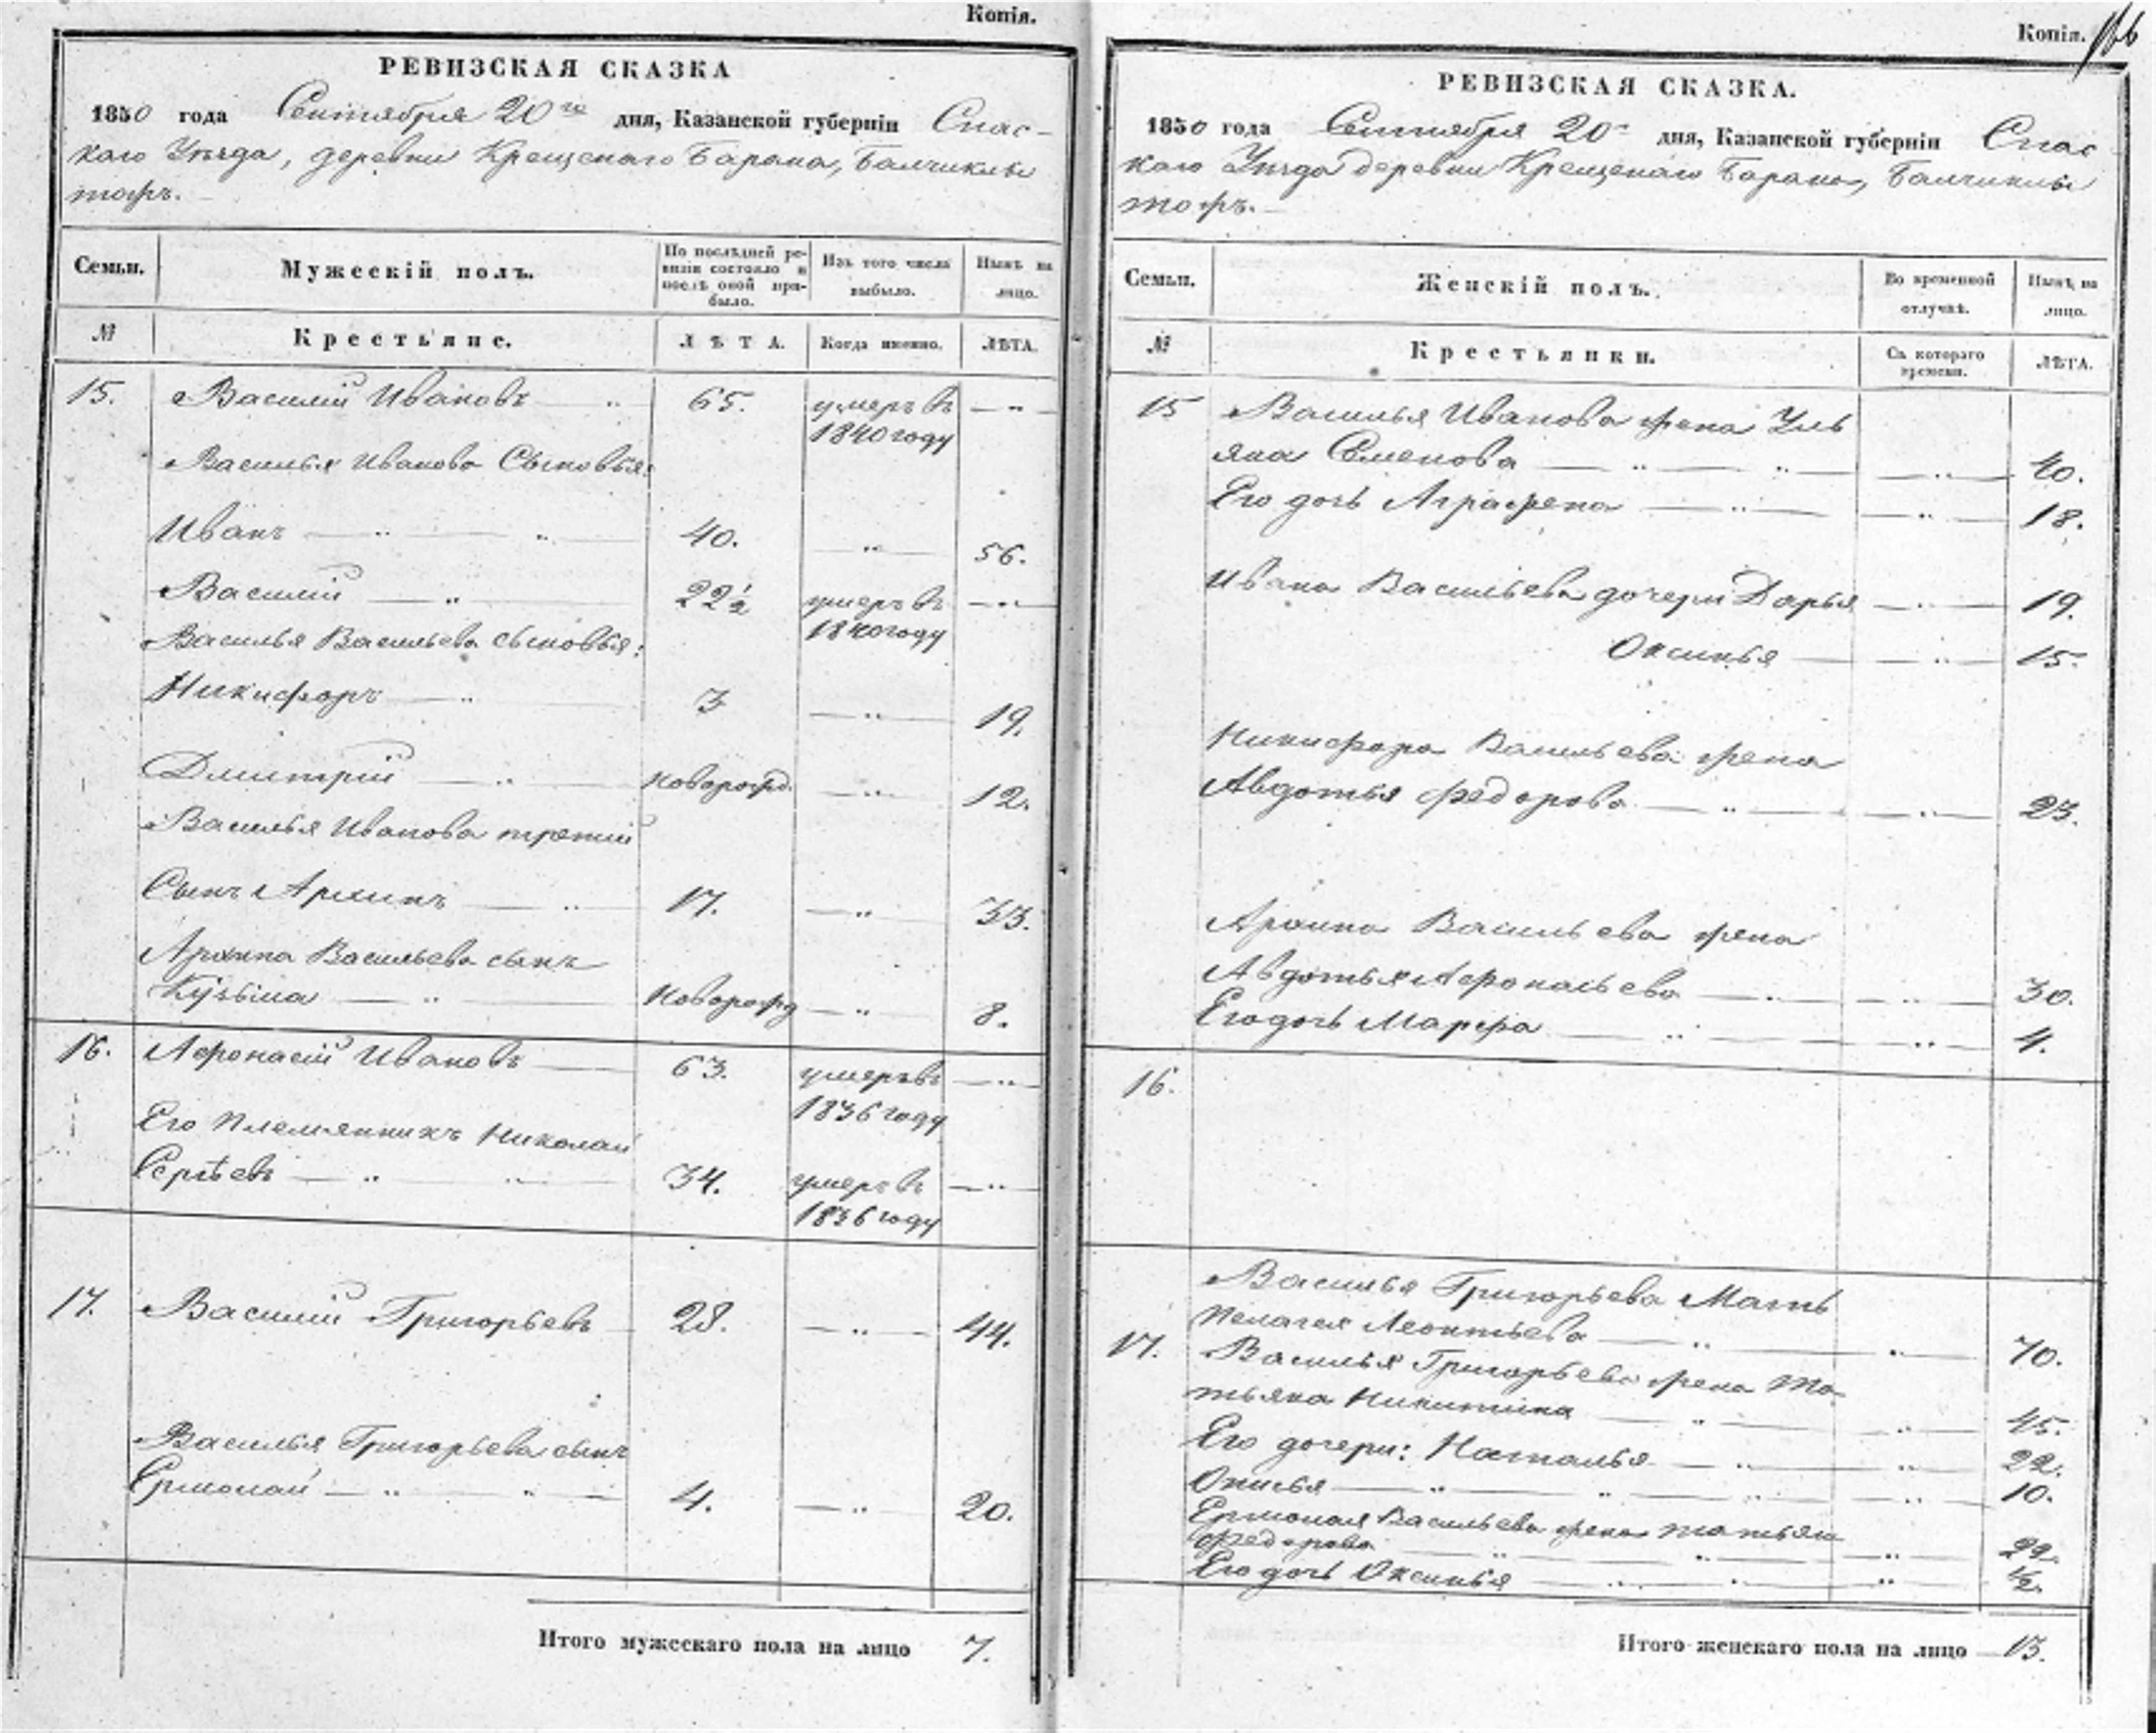 Копія.
РЕВИЗСКАЯ СКАЗКА
1850 года Сентября 20го дня, Казанской губерніи Спас-
каго Уѣзда, деревни Крещенаго Барана, Балчиклы
тожъ.
Семьи.
Мужескій полъ.
По послѣдней ре-
визіи состояло и
послѣ оной при-
было.
Изъ того числа
выбыло.
Нынѣ на
лицо.
№
Крестьяне.
ЛѢТА.
Когда именно.
ЛѢТА.
15. Василій Ивановъ 65. умеръ въ
1840 году
Василья Иванова Сыновья:
Иванъ 40. 56.
Василій 22½ умеръ въ
1840 году
Василья Васильева сыновья:
Никифоръ 3 19.
Дмитрій новорожд. 12.
Василья Иванова третій
Сынъ Архипъ 17. 33.
Архипа Васильева сынъ
Кузьма новорожд 8.
16. Афонасій Ивановъ 63. умеръ въ
1836 году
Его Племянникъ Николай
Сергѣевъ 34. умеръ въ
1836 году
17. Василій Григорьевъ 28. 44.
Василья Григорьева сынъ
Ермолай 4. 20.
Итого мужескаго пола на лицо 7.
Копія.
РЕВИЗСКАЯ СКАЗКА.
1850 года Сентября 20 дня, Казанской губерніи Спас-
каго Уѣзда деревни Крещенаго Барана, Балчиклы
тожъ.
Семьи.
Женскій полъ.
Во временной
отлучкѣ.
Нынѣ на
лицо.
№
Крестьянки.
Съ котораго
времени.
ЛѢТА.
15 Василья Иванова жена Уль
яна Семенова 40.
Его дочь Аграфена 18.
Ивана Васильева дочери Дарья 19.
Оксинья 15.
Никифора Васильева жена
Авдотья Федорова 23.
Архипа Васильева жена
Авдотья Афонасьева 30.
Его дочь Марфа 4.
16.
Василья Григорьева Мать
Пелагея Леонтьева 70.
17. Василья Григорьева жена Та
тьяна Никитина 45.
Его дочери: Наталья 22.
10.
Ермолая Васильева жена Татьяна
Федорова 22.
Его дочь Оксинья ½.
Итого женскаго пола на лицо 13.